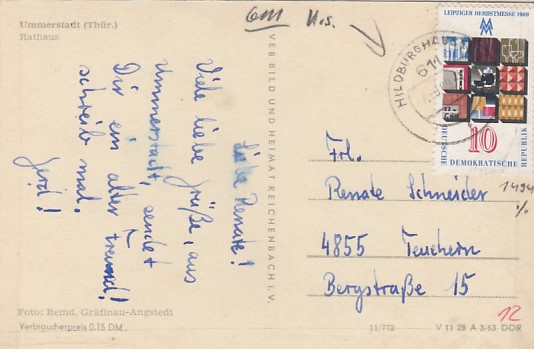 Ummerstadt (Thür.)
Rathaus
Liebe Renate!
Viele liebe Grüße, aus
Ummerstadt, sendet
Dir ein alter Freund!
schreib mal.
Gerd!
VEB BILD UND HEIMAT REICHENBACH i. V.
LEIPZIGER HERBSTMESSE 1969
MM
10
DEUTSCHE
DEMOKRATISCHE
REPUBLIK
HILDBURGHAUSEN
611
Frl.
Renate Schneider
4855 Teuchern
Bergstraße 15
1494
12
Foto: Remd, Gräfinau-Angstedt
Verbraucherpreis 0,15 DM
11/772
V 11 28 A 3/63 DDR